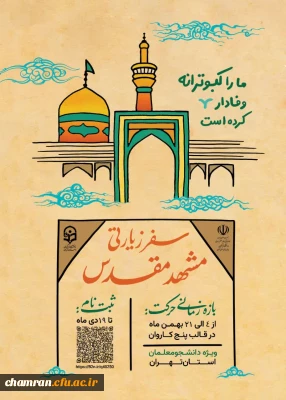 ما را کبوترانه
وفادار
کرده است
سفر زیارتی
مشهد مقدس
بازه زمانی حرکت:
از ٤ الی ٢١ بهمن ماه
در قالب پنج کاروان
ویژه دانشجومعلمان
استان تهران
ثبت نام:
تا ١٩ دی ماه
chamran.cfu.ac.ir